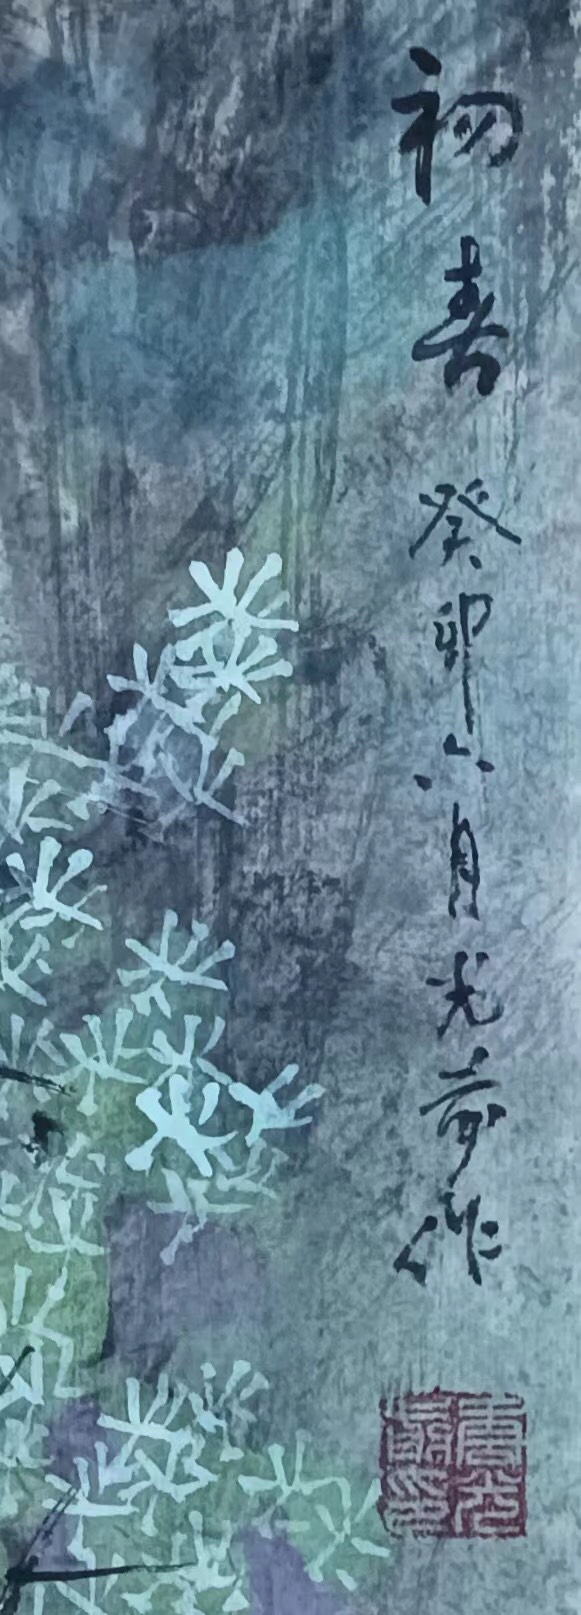 初春 癸卯六月光奇作